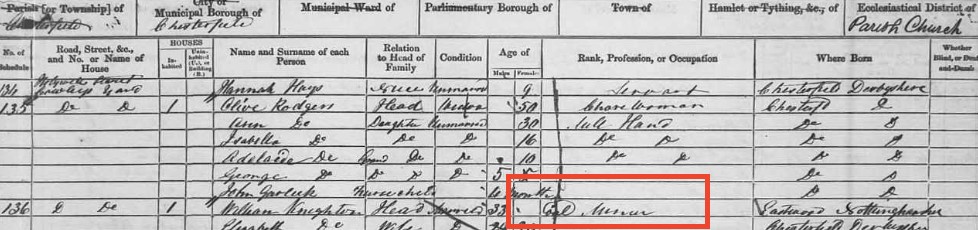 Parish [or Township] of City or Municipal Borough of Municipal Ward of Parliamentary Borough of Town of Hamlet or Tything, &c., of Ecclesiastical District of
Chesterfield Chesterfield Parish Church
No. of Schedule Road, Street, &c., and No. or Name of House HOUSES Inhabited Uninhabited (U.), or Building (B.) Name and Surname of each Person Relation to Head of Family Condition Age of Males Females Rank, Profession, or Occupation Where Born Whether Blind, or Deaf-and-Dumb
134 Hannah Hays Niece Unmarried 9 Servant Chesterfield Derbyshire
135 Do Do 1 Olive Rodgers Head Widow 50 Charwoman Chesterfd D
Ann Do Daughter Unmarried 30 Mill Hand Do D
Isabella Do Do Do 16 Do D Do D
Adelaide Do Grand Do Do 10 Do D Do D
George Do D D D 5 Do D
John Nurse child months D D
136 D Do 1 William Knighton Head Married 33 Coal Miner Eastwood Nottinghamshire
Elizabeth Do Wife D